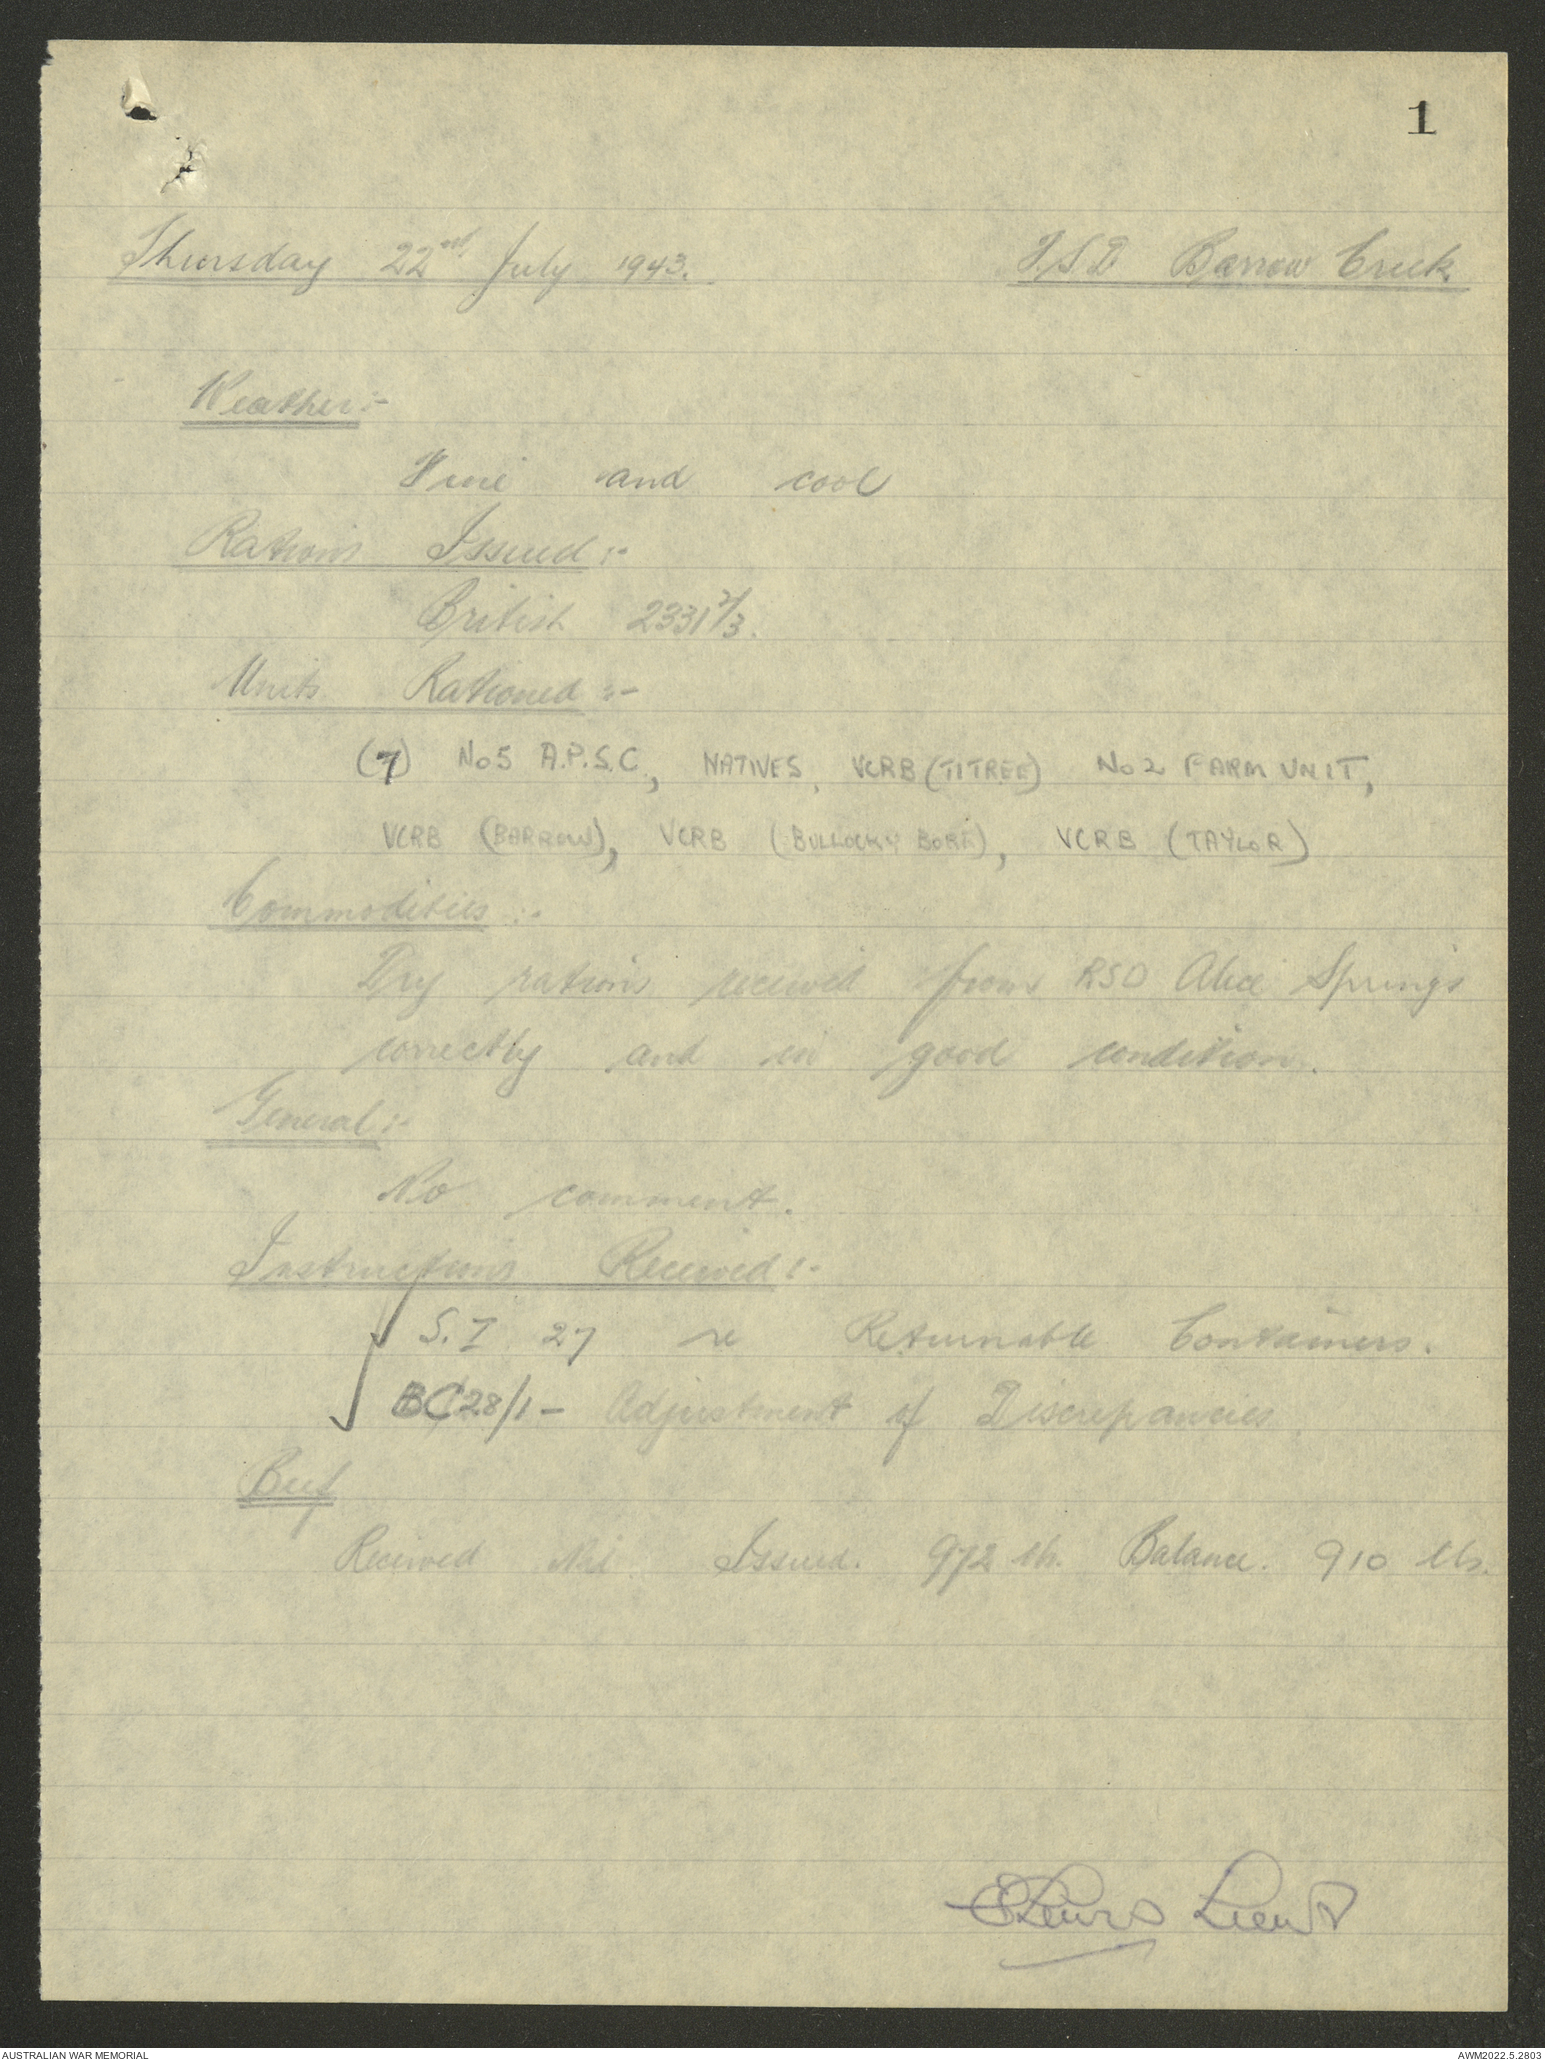 1
Thursday 22nd July 1943. F.S.D. Barrow Creek.
Weather:-
Fine and cool
Rations Issued:-
British 2331 2/3.
Units Rationed:-
(7) No 5 A.P.S.C., NATIVES, VCRB (TITREE) No 2 FARM UNIT,
VCRB (BARROW), VCRB (BULLOCKY BORE), VCRB (TAYLOR)
Commodities:-
Dry rations received from RSO Alice Springs
correctly and in good condition.
General:-
No comment.
Instructions Received:-
S.I 27 re Returnable Containers.
BC28/1 - Adjustment of Discrepancies.
Beef
Received Nil. Issued. 972 lb. Balance. 910 lbs.
Lieut
AUSTRALIAN WAR MEMORIAL AWM2022.5.2803